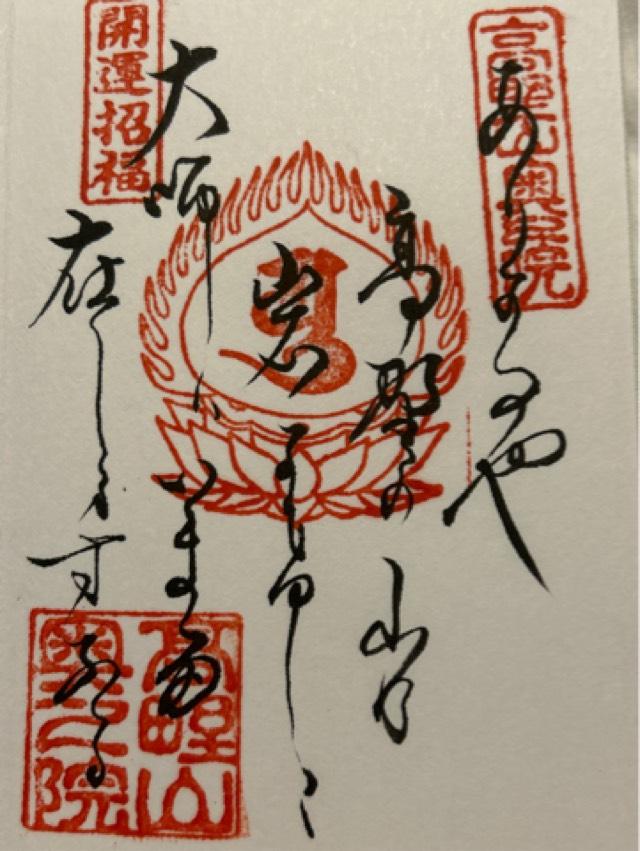 高野山奥之院
ありがたや
高野の山の
岩かげに
大師はいまだ
在しますなる
開運招福
高野山
奥之院